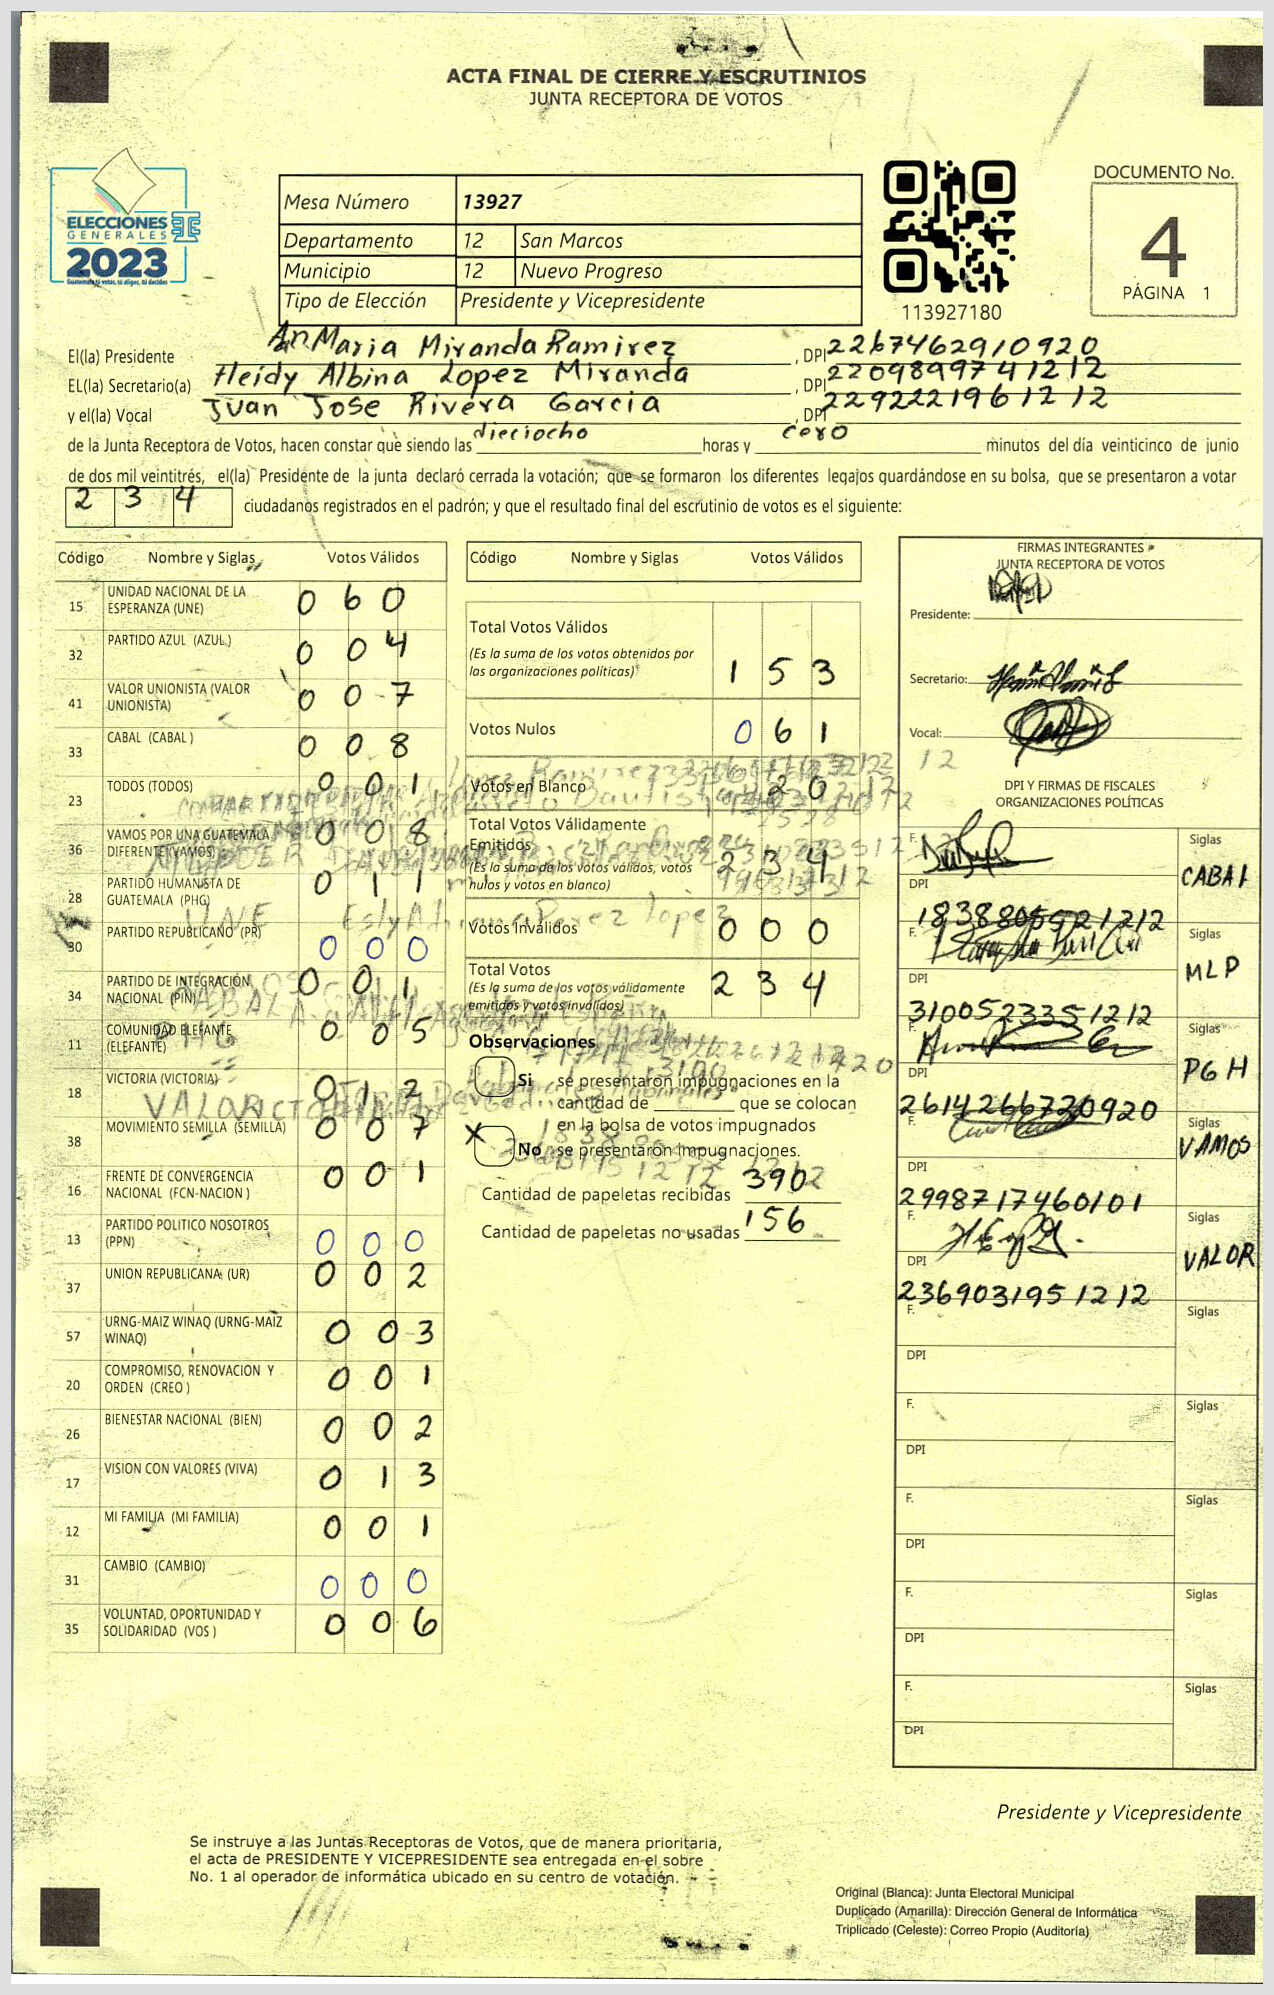 ACTA FINAL DE CIERRE Y ESCRUTINIOS
JUNTA RECEPTORA DE VOTOS
ELECCIONES
GENERALES
2023
Mesa Número 13927
Departamento 12 San Marcos
Municipio 12 Nuevo Progreso
Tipo de Elección Presidente y Vicepresidente
113927180
DOCUMENTO No.
4
PÁGINA 1
El(la) Presidente Maria Miranda Ramirez, DPI 2267462910920
EL(la) Secretario(a) Heidy Albina Lopez Miranda, DPI 2209899741212
y el(la) Vocal Juan Jose Rivera Garcia, DPI 2292221961212
de la Junta Receptora de Votos, hacen constar que siendo las dieciocho horas y cero minutos del día veinticinco de junio
de dos mil veintitrés, el(la) Presidente de la junta declaró cerrada la votación; que se formaron los diferentes legajos guardándose en su bolsa, que se presentaron a votar
2 3 4 ciudadanos registrados en el padrón; y que el resultado final del escrutinio de votos es el siguiente:
Código Nombre y Siglas Votos Válidos
15 UNIDAD NACIONAL DE LA ESPERANZA (UNE) 0 6 0
32 PARTIDO AZUL (AZUL) 0 0 4
41 VALOR UNIONISTA (VALOR UNIONISTA) 0 0 7
33 CABAL (CABAL) 0 0 8
23 TODOS (TODOS) 0 0 1
36 VAMOS POR UNA GUATEMALA DIFERENTE (VAMOS) 0 0 8
28 PARTIDO HUMANISTA DE GUATEMALA (PHG) 0 1 1
30 PARTIDO REPUBLICANO (PR) 0 0 0
34 PARTIDO DE INTEGRACIÓN NACIONAL (PIN) 0 0 1
11 COMUNIDAD ELEFANTE (ELEFANTE) 0 0 5
18 VICTORIA (VICTORIA) 0 1 2
38 MOVIMIENTO SEMILLA (SEMILLA) 0 0 7
16 FRENTE DE CONVERGENCIA NACIONAL (FCN-NACION) 0 0 1
13 PARTIDO POLITICO NOSOTROS (PPN) 0 0 0
37 UNION REPUBLICANA (UR) 0 0 2
57 URNG-MAIZ WINAQ (URNG-MAIZ WINAQ) 0 0 3
20 COMPROMISO, RENOVACION Y ORDEN (CREO) 0 0 1
26 BIENESTAR NACIONAL (BIEN) 0 0 2
17 VISION CON VALORES (VIVA) 0 1 3
12 MI FAMILIA (MI FAMILIA) 0 0 1
31 CAMBIO (CAMBIO) 0 0 0
35 VOLUNTAD, OPORTUNIDAD Y SOLIDARIDAD (VOS) 0 0 6
Código Nombre y Siglas Votos Válidos
Total Votos Válidos 1 5 3
(Es la suma de los votos obtenidos por
las organizaciones políticas)
Votos Nulos 0 6 1
Votos en Blanco 2 0
Total Votos Válidamente
Emitidos 2 3 4
(Es la suma de los votos válidos, votos
nulos y votos en blanco)
Votos Inválidos 0 0 0
Total Votos 2 3 4
(Es la suma de los votos válidamente
emitidos y votos inválidos)
Observaciones
Si se presentaron impugnaciones en la
cantidad de que se colocan
en la bolsa de votos impugnados
X No se presentaron impugnaciones.
Cantidad de papeletas recibidas 390
Cantidad de papeletas no usadas 156
FIRMAS INTEGRANTES
JUNTA RECEPTORA DE VOTOS
Presidente:
Secretario:
Vocal:
DPI Y FIRMAS DE FISCALES
ORGANIZACIONES POLÍTICAS
F. Siglas CABAL
DPI 1838805521212
F. Siglas MLP
DPI 3100523351212
F. Siglas PGH
DPI 2614266720920
F. Siglas VAMOS
DPI 2998717460101
F. Siglas VALOR
DPI 2369031951212
F. Siglas
DPI
F. Siglas
DPI
F. Siglas
DPI
F. Siglas
DPI
F. Siglas
DPI
Presidente y Vicepresidente
Se instruye a las Juntas Receptoras de Votos, que de manera prioritaria,
el acta de PRESIDENTE Y VICEPRESIDENTE sea entregada en el sobre
No. 1 al operador de informática ubicado en su centro de votación.
Original (Blanca): Junta Electoral Municipal
Duplicado (Amarilla): Dirección General de Informática
Triplicado (Celeste): Correo Propio (Auditoría)